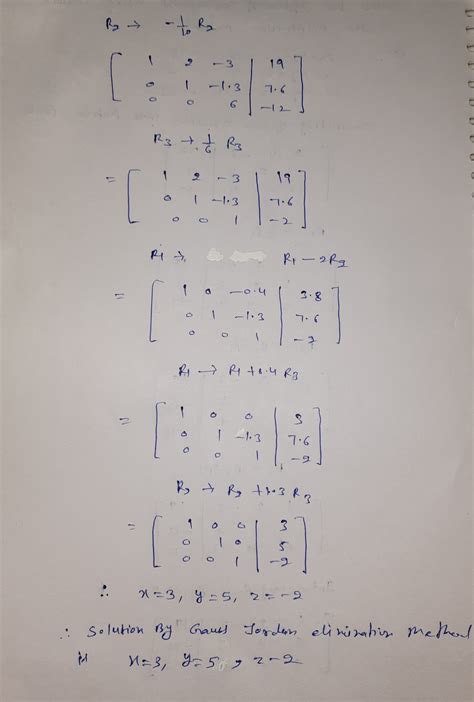 R2 → -1/10 R2
[ 1 2 -3 | 19 ]
[ 0 1 -1.3 | 7.6 ]
[ 0 0 6 | -12 ]
R3 → 1/6 R3
= [ 1 2 -3 | 19 ]
[ 0 1 -1.3 | 7.6 ]
[ 0 0 1 | -2 ]
R1 → R1 - 2R2
= [ 1 0 -0.4 | 3.8 ]
[ 0 1 -1.3 | 7.6 ]
[ 0 0 1 | -2 ]
R1 → R1 + 0.4 R3
= [ 1 0 0 | 3 ]
[ 0 1 -1.3 | 7.6 ]
[ 0 0 1 | -2 ]
R2 → R2 + 1.3 R3
= [ 1 0 0 | 3 ]
[ 0 1 0 | 5 ]
[ 0 0 1 | -2 ]
∴ x=3, y=5, z=-2
∴ Solution By Gauss Jordan elimination Method
is x=3, y=5, z=-2